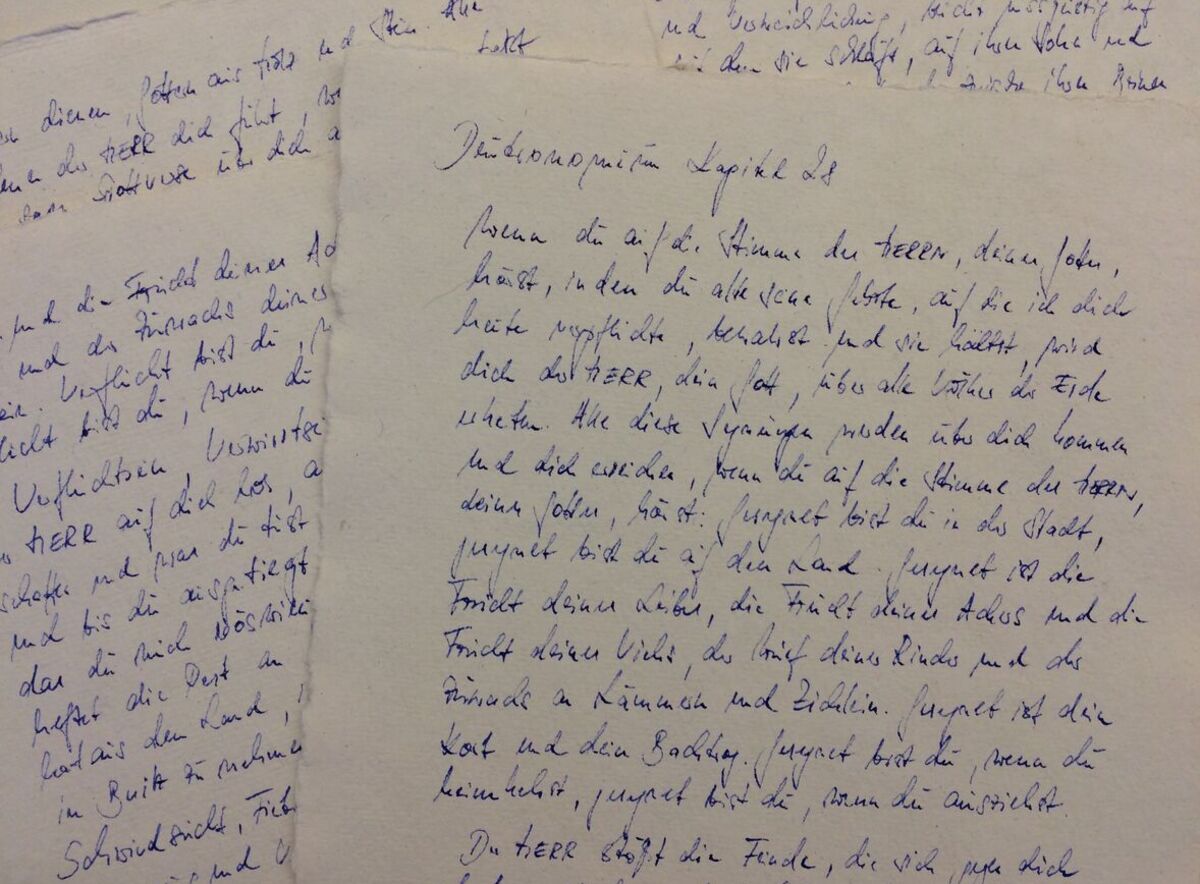 und Stein. Alle
dienen, Göttern aus Holz
der HERR dich führt,
über dich
und die Frucht deines
und der Zuwachs deiner
Verflucht bist du,
bist du, wenn du
Verfluchtsein, Verwirrtsein
HERR auf dich los,
schaffen und was du tust
und bis du ausgetilgt
das du mich böswillig
heftet die Pest an
hat aus dem Land,
in Besitz zu nehmen
Schwindsucht,
und
und Verweichlichung, blickt missgünstig auf
mit dem sie schläft, auf ihren Sohn und
ihren Beinen
Deuteronomium Kapitel 28
Wenn du auf die Stimme des HERRN, deines Gottes,
hörst, indem du alle seine Gebote, auf die ich dich
heute verpflichte, bewahrst und sie hältst, wird
dich der HERR, dein Gott, über alle Völker der Erde
erheben. Alle diese Segnungen werden über dich kommen
und dich erreichen, wenn du auf die Stimme des HERRN,
deines Gottes, hörst: Gesegnet bist du in der Stadt,
gesegnet bist du auf dem Land. Gesegnet ist die
Frucht deines Leibes, die Frucht deines Ackers und die
Frucht deines Viehs, der Wurf deiner Rinder und der
Zuwachs an Lämmern und Zicklein. Gesegnet ist dein
Korb und dein Backtrog. Gesegnet bist du, wenn du
heimkehrst, gesegnet bist du, wenn du ausziehst.
Der HERR stößt die Feinde, die sich gegen dich